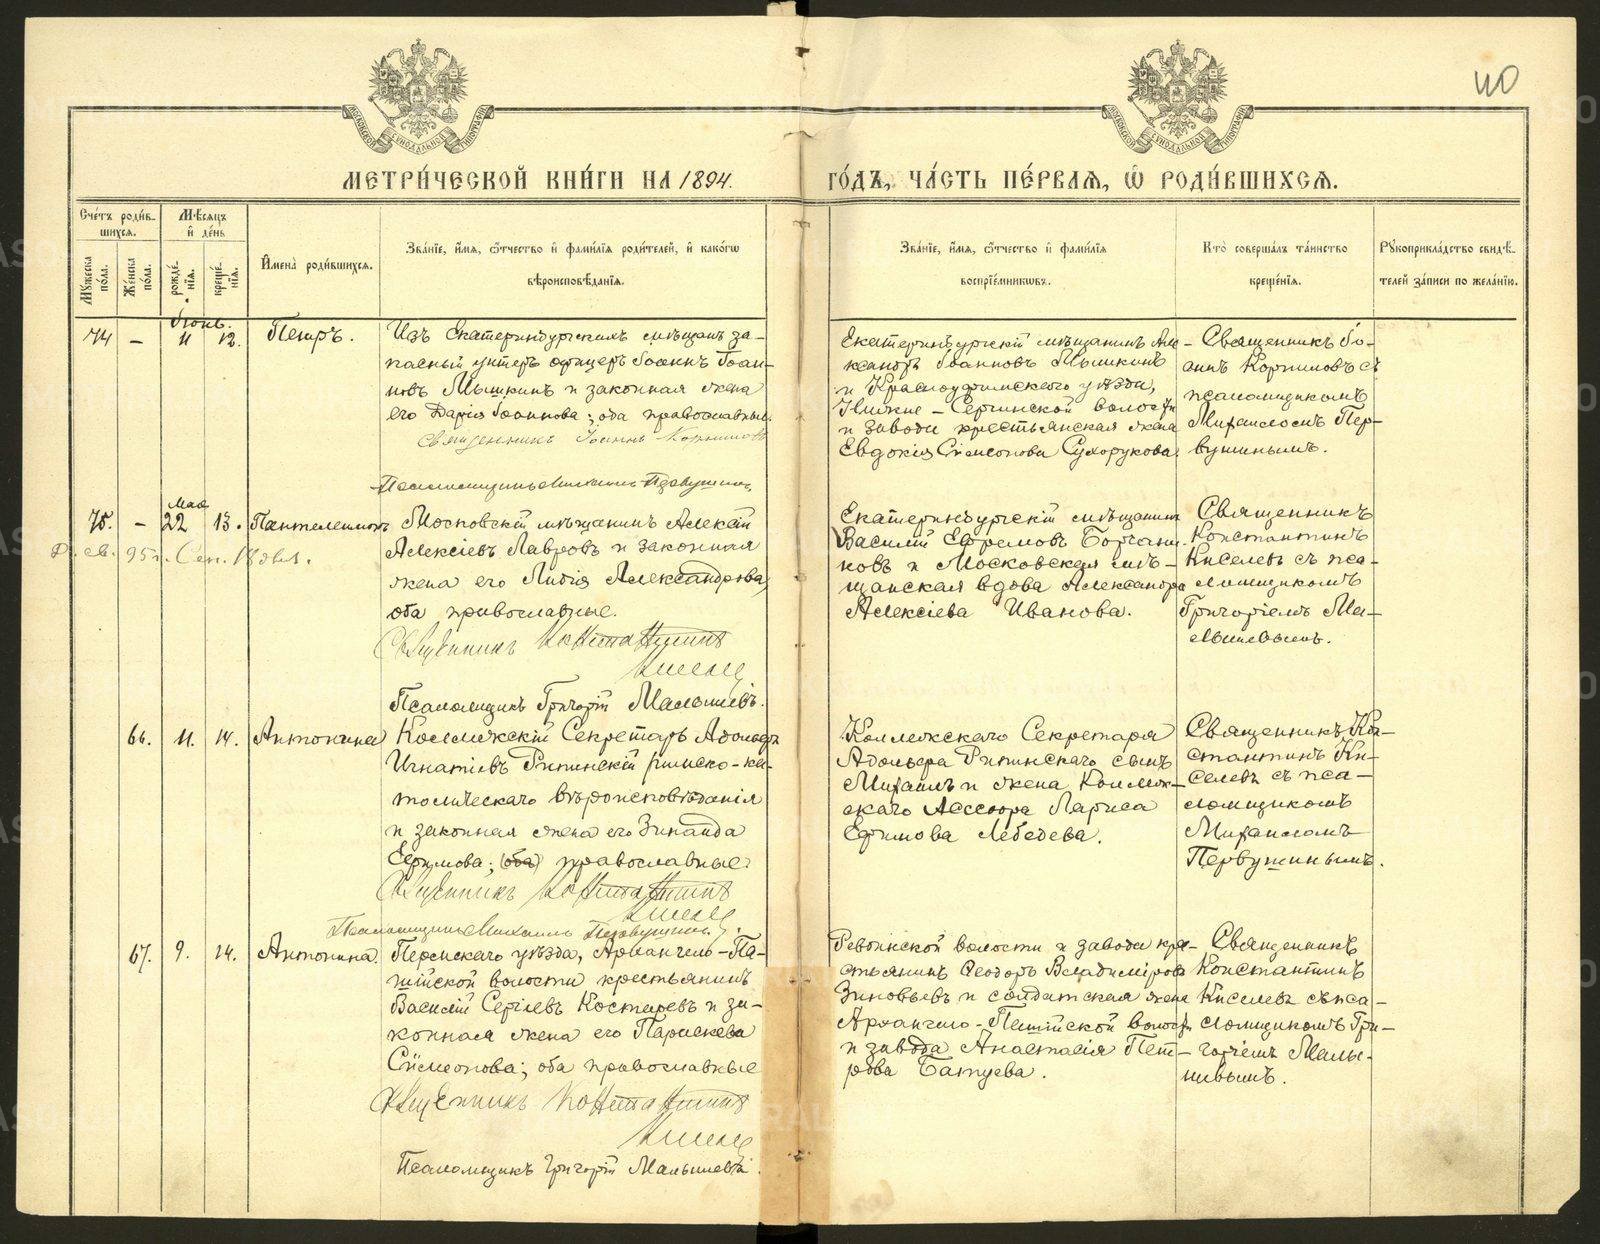 МОСКОВСКОЙ СУНОДАЛЬНОЙ ТИПОГРАФІИ
МОСКОВСКОЙ СУНОДАЛЬНОЙ ТИПОГРАФІИ
40
МЕТРИ́ЧЕСКОЙ КНИ́ГИ НА 1894. ГО́ДЪ, ЧА́СТЬ ПЕ́РВАЯ, Ѡ РОДИ́ВШИХСЯ.
Сче́тъ роди́в-
шихся.
Мꙋжеска по́ла.
Же́нска по́ла.
Мѣ́сяцъ
и҆ де́нь
рожде́-
нїя.
креще́-
нїя.
И҆мена̀ роди́вшихся.
Зва́нїе, и҆́мя, ѻ҆́тчество и҆ фами́лїя роди́телей, и҆ како́гѡ
вѣроисповѣ́данїя.
Зва́нїе, и҆́мя, ѻ҆́тчество и҆ фами́лїя
воспрїе́мниковъ.
Кто̀ соверша́лъ та́инство
креще́нїя.
Рꙋкоприкла́дство свидѣ́-
телей за́писи по жела́нїю.
74 – Іюнь. 11 12. Петръ.
Изъ Екатеринбургскихъ мѣщанъ за-
пасный унтеръ офицеръ Іоаннъ Іоан-
новъ Мышкинъ и законная жена
его Дарія Іоаннова; оба православные.
Священникъ Іоаннъ Корниловъ
Псаломщикъ Михаилъ Первушинъ
Екатеринбургскій мѣщанинъ Але-
ксандръ Іоанновъ Мышкинъ
и Красноуфимскаго уѣзда,
Нижне-Сергинской волости
и завода крестьянская жена
Евдокія Симеонова Сухорукова.
Священникъ Іо-
аннъ Корниловъ съ
псаломщикомъ
Михаиломъ Пер-
вушинымъ.
75. – Мая 22 13. Пантелеимонъ
Р. св. 95 г. Сен. 18 дня.
Московскій мѣщанинъ Алексій
Алексіевъ Лавровъ и законная
жена его Лидія Александрова,
оба православные.
Священникъ Константинъ
Киселевъ
Псаломщикъ Григорій Малышевъ.
Екатеринбургскій мѣщанинъ
Василій Ефремовъ
новъ и Московская мѣ-
щанская вдова Александра
Алексіева Иванова.
Священникъ
Константинъ
Киселевъ съ пса-
ломщикомъ
Григоріемъ Ма-
лышевымъ.
66. 11. 14. Антонина
Коллежскій Секретарь Адольфъ
Игнатіевъ Рипинскій римско-ка-
толическаго вѣроисповѣданія
и законная жена его Зинаида
Ефимова; (оба) православные.
Священникъ Константинъ
Киселевъ
Псаломщикъ Михаилъ Первушинъ.
Коллежскаго Секретаря
Адольфа Рипинскаго сынъ
Михаилъ и жена Коллеж-
скаго Ассесора Лариса
Ефимова Лебедева.
Священникъ Кон-
стантинъ Ки-
селевъ съ пса-
ломщикомъ
Михаиломъ
Первушинымъ.
67. 9. 14. Антонина
Пермскаго уѣзда, Архангело-Па-
шійской волости крестьянинъ
Василій Сергіевъ Костаревъ и за-
конная жена его Параскева
Симеонова; оба православные
Священникъ Константинъ
Киселевъ
Псаломщикъ Григорій Малышевъ.
Ревдинской волости и завода кре-
стьянинъ Ѳеодоръ Владиміровъ
Зиновьевъ и солдатская жена
Архангело-Пашійской волости
и завода Анастасія Пет-
рова Батуева.
Священникъ
Константинъ
Киселевъ съ пса-
ломщикомъ Гри-
горіемъ Малы-
шевымъ.